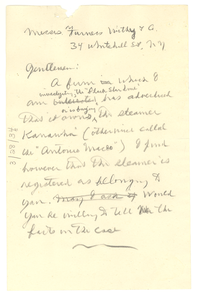 Messrs Furness Withy & Co.
34 Whitehall St. N.Y
Gentlemen:
A firm in which I
am interested has advertised
that it owns the steamer
Kanawha (otherwise called
the "Antonio Maceo") I find
however that this steamer is
registered as belonging to
you. May I ask if Would
you be willing to tell me the
facts in the case